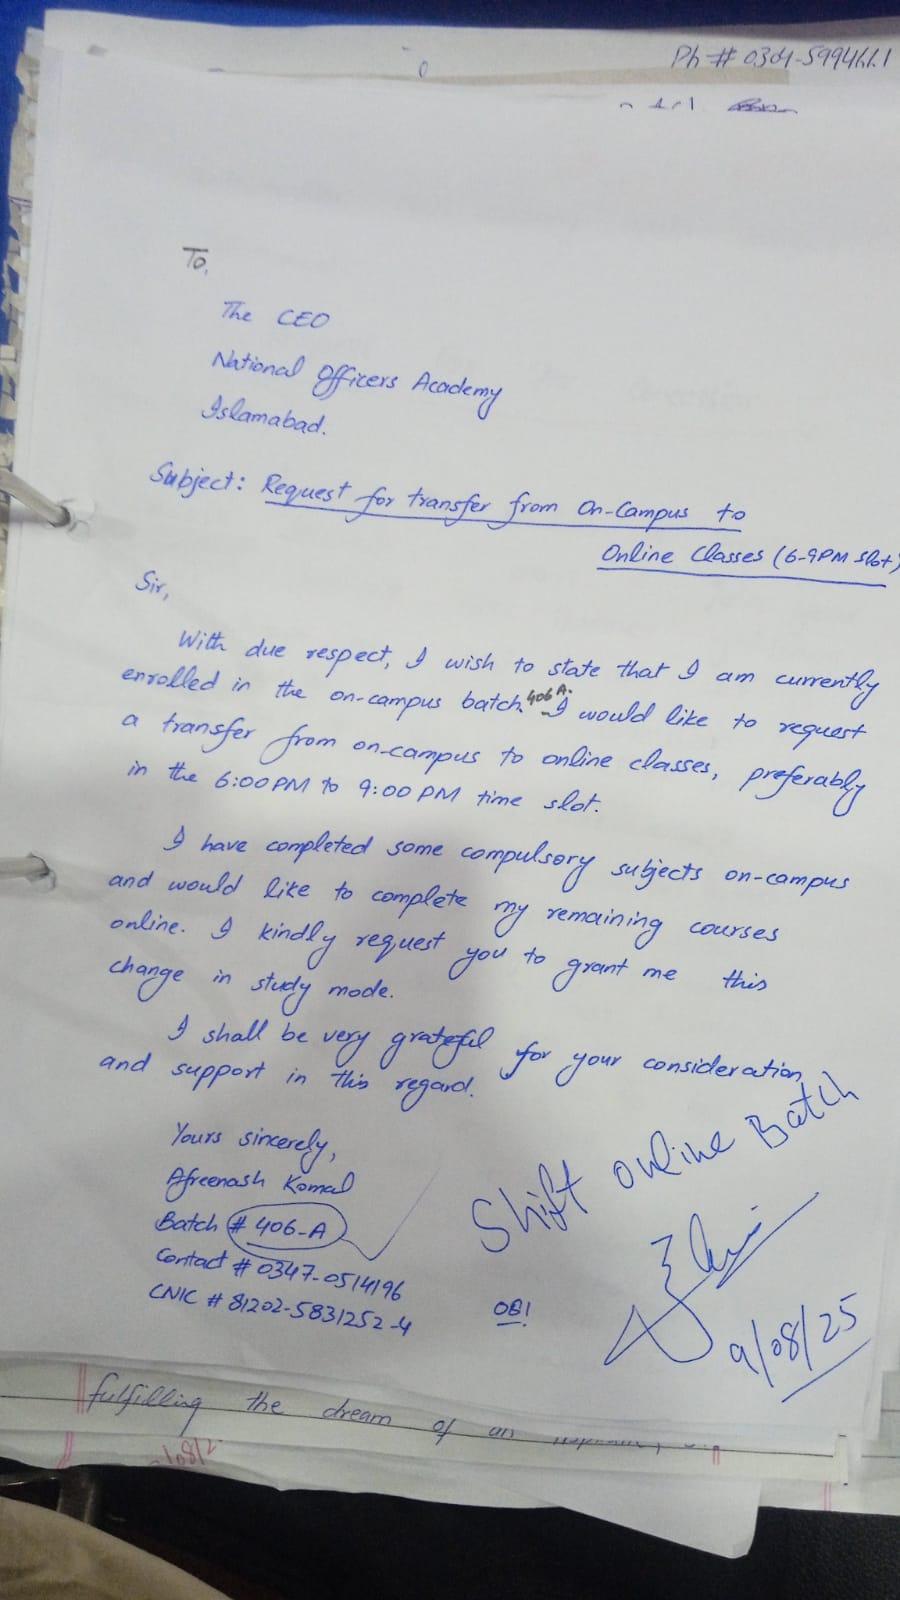 Ph # 0304-5994661
To,
The CEO
National Officers Academy
Islamabad.
Subject: Request for transfer from On-Campus to
Online Classes (6-9PM Slot)
Sir,
With due respect, I wish to state that I am currently
enrolled in the on-campus batch 406 A. I would like to request
a transfer from on-campus to online classes, preferably
in the 6:00 PM to 9:00 PM time slot.
I have completed some compulsory subjects on-campus
and would like to complete my remaining courses
online. I kindly request you to grant me this
change in study mode.
I shall be very grateful for your consideration
and support in this regard.
Yours sincerely,
Afreenash Komal
Batch # 406-A
Contact # 0347-0514196
CNIC # 81202-5831252-4
Shift online Batch
9/08/25
fulfilling the dream of an